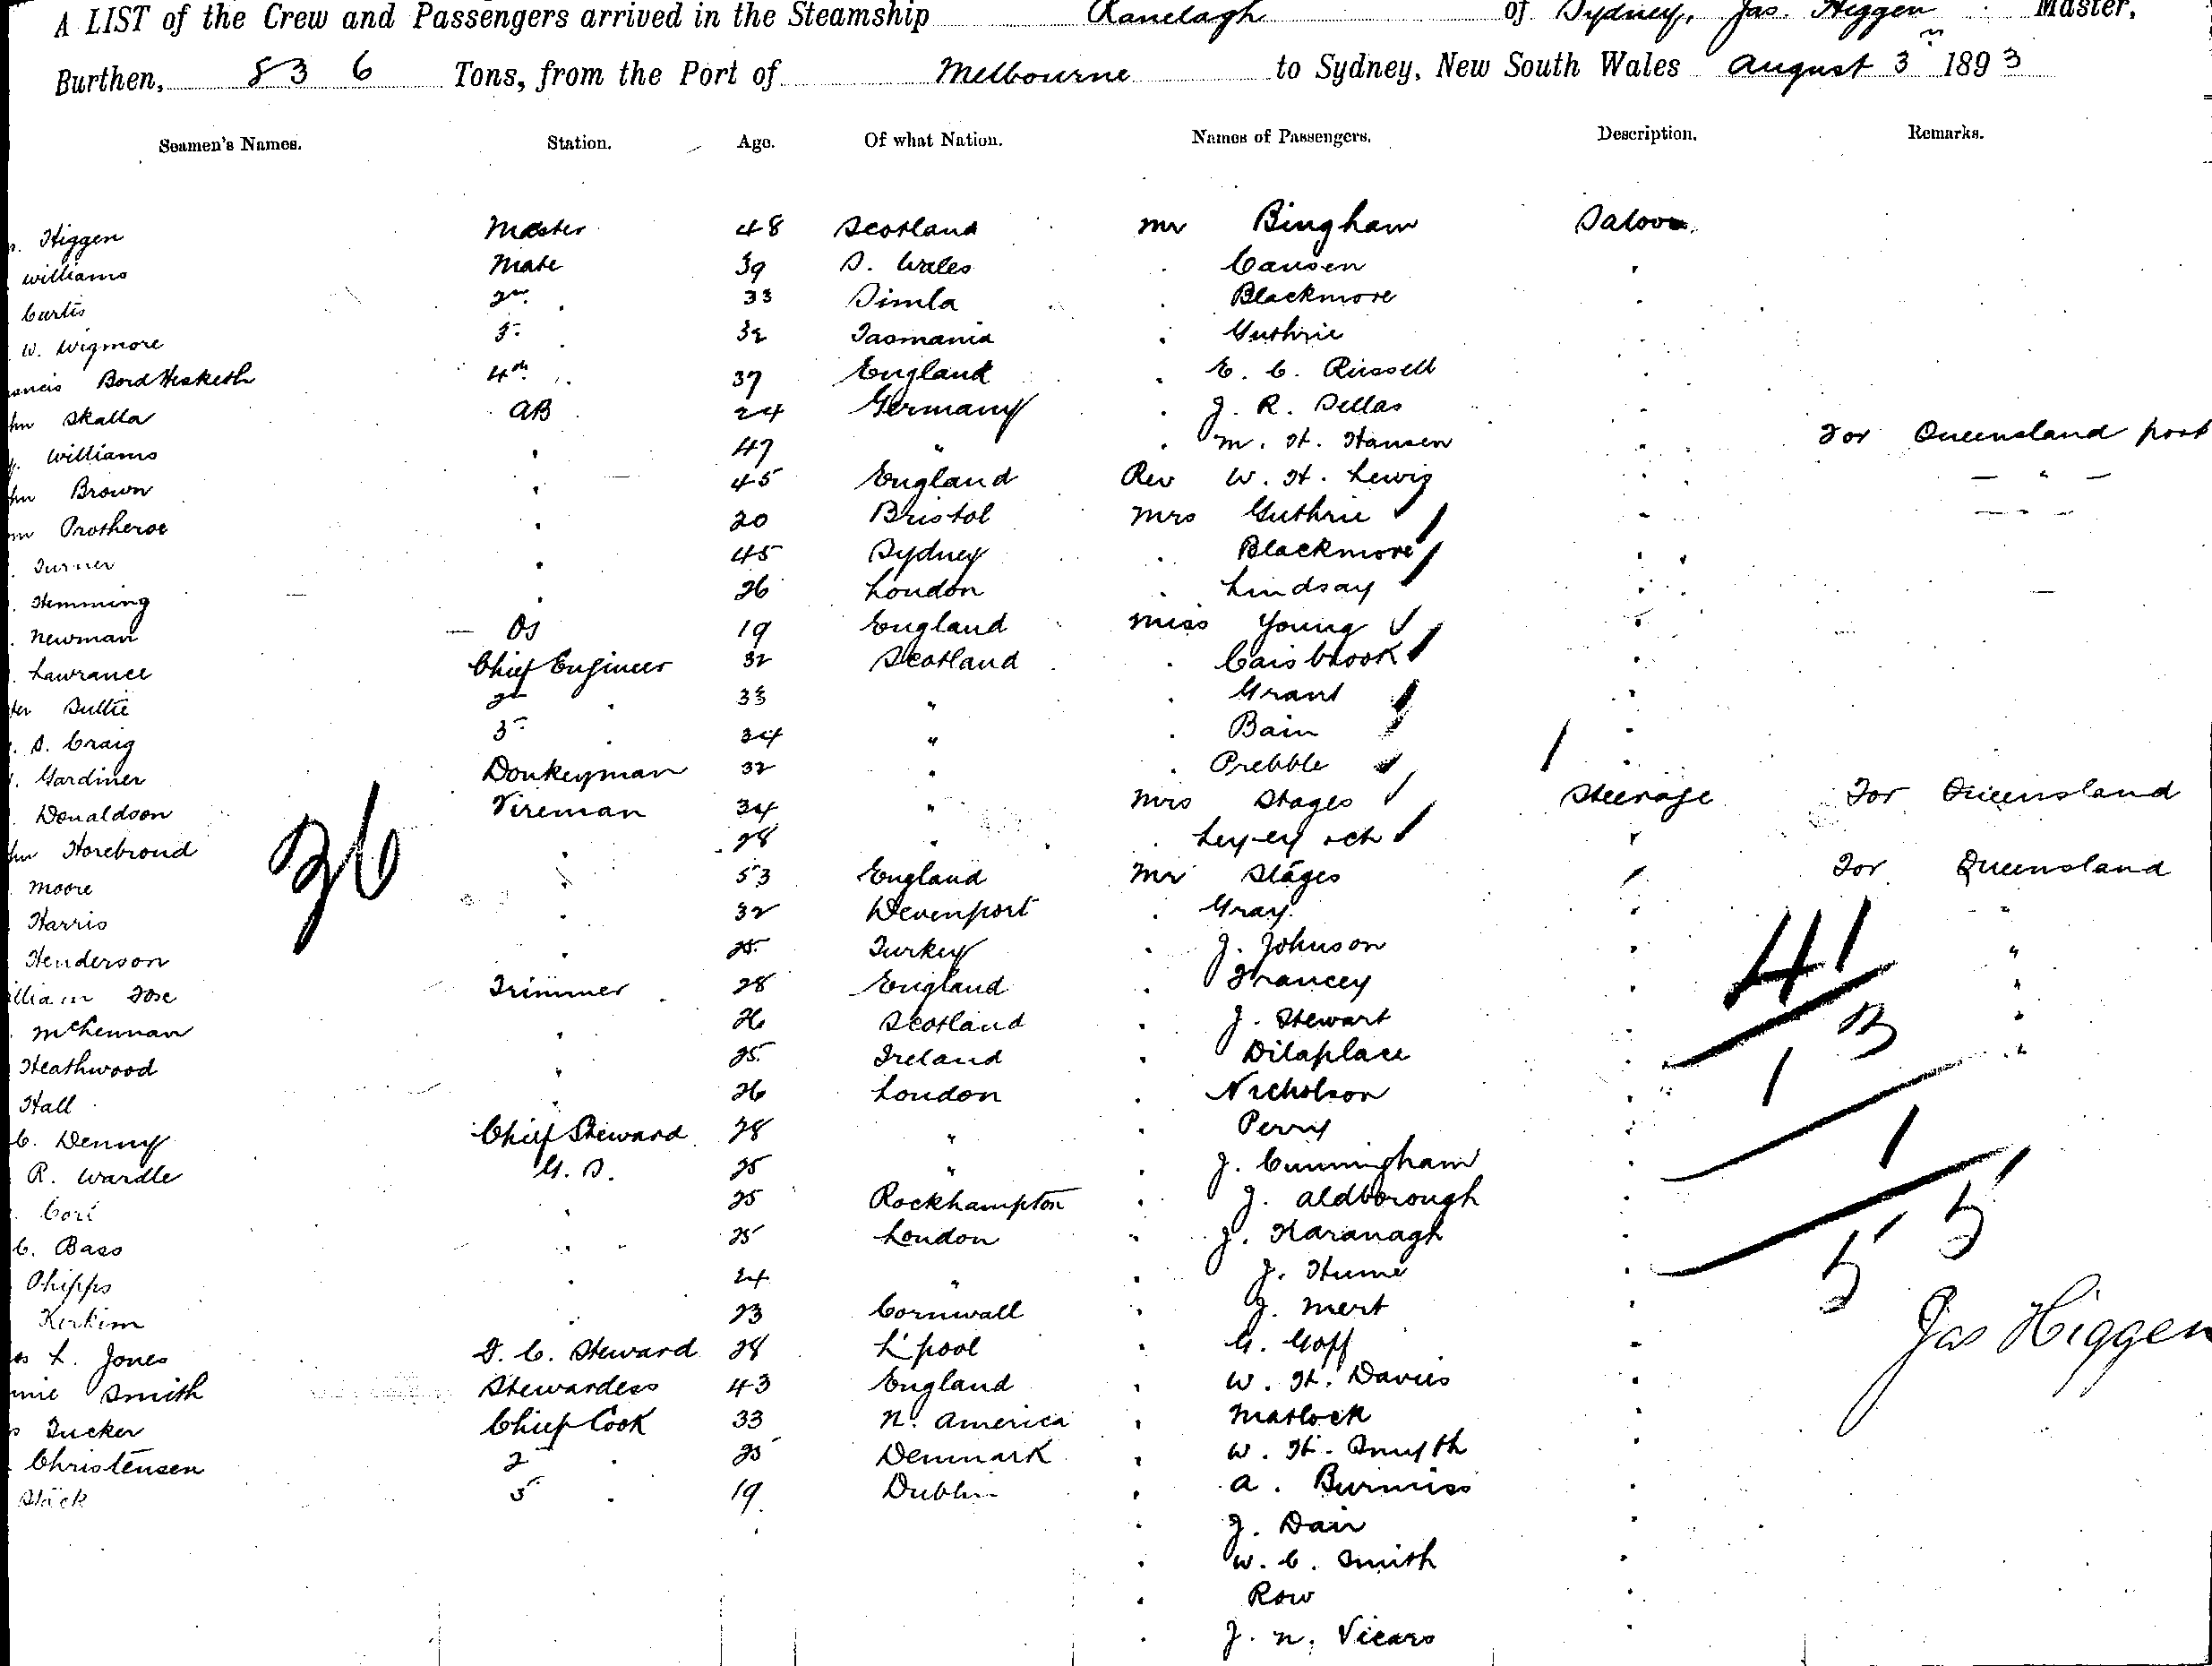 A LIST of the Crew and Passengers arrived in the Steamship Ranelagh of Sydney, Jas. Higgen Master,
Burthen, 836 Tons, from the Port of Melbourne to Sydney, New South Wales August 3rd 1893
Seamen's Names. Station. Age. Of what Nation. Names of Passengers. Description. Remarks.
Higgen Master 48 Scotland Mr Bingham Saloon
Williams Mate 39 S. Wales . Causen .
Curtis 2nd . 33 Simla . Blackmore .
W. Wigmore 3 . 32 Tasmania . Guthrie .
Bord Hesketh 4th . 37 England . E. C. Russell
Skalla AB 24 Germany . J. R. Sellas .
Williams . 47 " . M. H. Hansen . For Queensland port
Brown . 45 England Rev W. H. Lewis . — " —
Protheroe . 20 Bristol Mrs Guthrie . — " —
Turner . 45 Sydney . Blackmore .
Hemming . 26 London . Lindsay .
Newman OS 19 England Miss Young .
Lawrance Chief Engineer 32 Scotland . Caisbrook .
Suttie 2 . 33 " . Grant .
S. Craig 3 . 34 " . Bain .
Gardiner Donkeyman 32 " . Prebble .
Donaldson Fireman 34 " Mrs Stages Steerage For Queensland
Horebroud . 28 . .
Moore . 53 England Mr Stages . For Queensland
Harris . 32 Devenport . Gray . "
Henderson . 25 Turkey . J. Johnson . "
Jose Trimmer 28 England . Francey . "
McLennan . 26 Scotland . J. Stewart . "
Heathwood . 25 Ireland . Dilaplace . "
Hall . 26 London . Nicholson .
C. Denny Chief Steward 28 " . Perry .
R. Wardle G. S. 25 " . J. Cunningham .
Cori . 25 Rockhampton . J. Aldborough .
C. Bass . 25 London . J. Karanagh .
Phipps . 24 " . J. Hume .
Kerkim . 23 Cornwall . J. Mert .
L. Jones F. C. Steward 28 L'pool . G. Goff .
Smith Stewardess 43 England . W. H. Davies .
Tucker Chief Cook 33 N. America . Matlock .
Christensen 2 . 25 Denmark . W. H. Smyth .
Slack 3 . 19 Dublin . A. Burmiss .
. J. Dair .
. W. C. Smith .
. Row .
. J. N. Vicars .
36
41
13
1
1
55
Jas Higgen